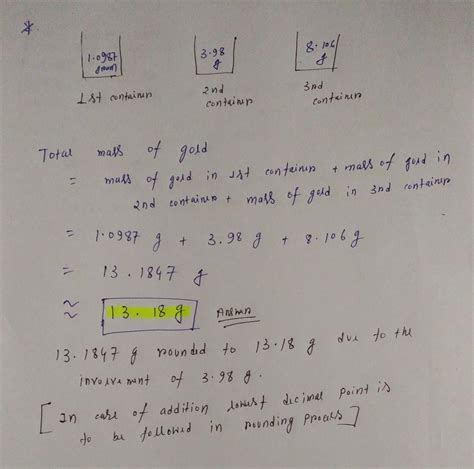 *
1.0987 gram
3.98 g
8.106 g
1st container
2nd container
3rd container
Total mass of gold
= mass of gold in 1st container + mass of gold in
2nd container + mass of gold in 3rd container
= 1.0987 g + 3.98 g + 8.106 g
= 13.1847 g
≈ 13.18 g Answer
13.1847 g rounded to 13.18 g due to the
involvement of 3.98 g.
[In case of addition lowest decimal point is
to be followed in rounding process]